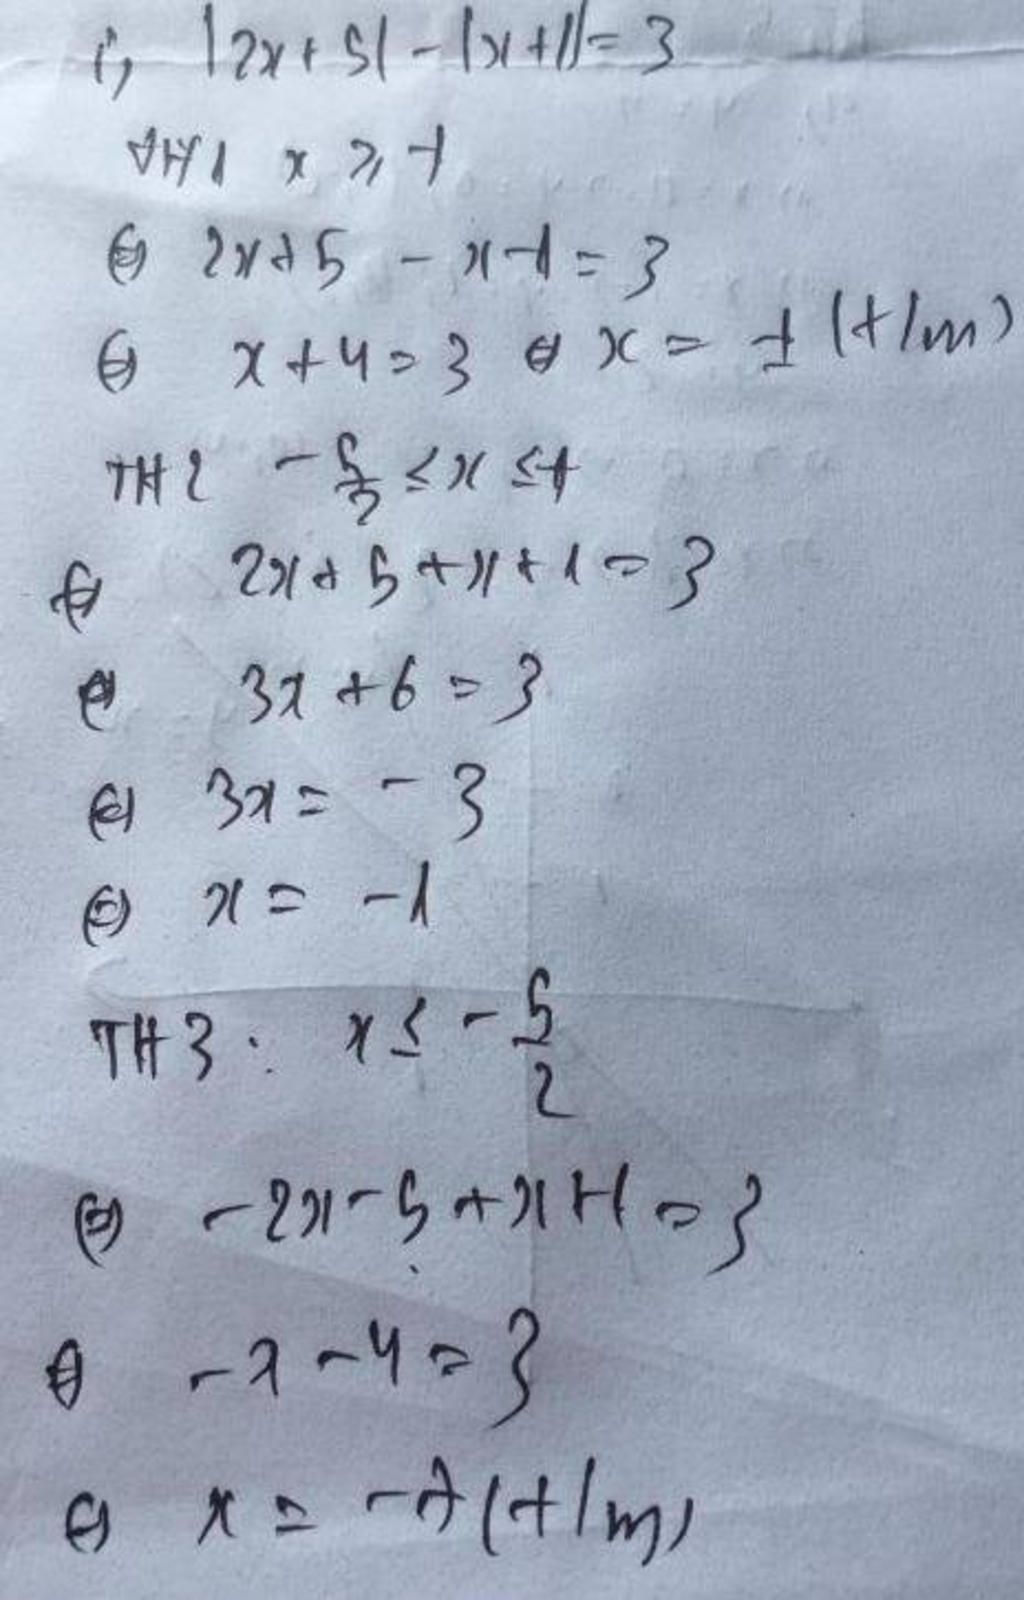 i, |2x + 5| - |x + 1| = 3
TH1 x ≥ -1
⇔ 2x + 5 - x - 1 = 3
⇔ x + 4 = 3 ⇔ x = -1 (t/m)
TH2 -5/2 ≤ x ≤ -1
⇔ 2x + 5 + x + 1 = 3
⇔ 3x + 6 = 3
⇔ 3x = -3
⇔ x = -1
TH3: x ≤ -5/2
⇔ -2x - 5 + x + 1 = 3
⇔ -x - 4 = 3
⇔ x = -7 (t/m)